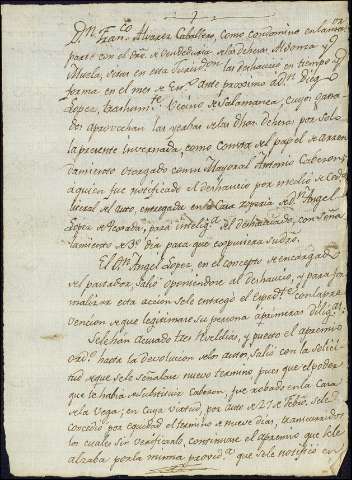 Dn. Franco. Alvarez Caballero, como condomino en la mor.
parte con el Sr. de las dehesas Aldonza y
Muela, sitas en esta Jurisdon. las deshaucio en tiempo y
forma en el mes de En.o ante proximo a Dn. Diego
Lopez, trashumte. Vecino de Salamanca, cuyos gana
dos aprovechan las yerbas de las dhas. dehesas por solo
la presente Invernada, como consta del papel de arren
damiento otorgado con su Mayoral Antonio Caberon
a quien fue notificado el deshaucio por medio de
literal del auto, entregada en la Casa de Dn. Angel
Lopez de para inteliga. del deshauciado, con seña
lamiento de 3o. dia para que expusiera su dro.
El Dn. Angel Lopez, en el concepto de encargado
del pastor, salió oponiendose al deshaucio, y para for
malizar esta accion se le entregó el expdte. con la pre
vencion de que legitimare su persona a primeras diliga.
Se le han acusado tres Reveldias, y puesto el apremio
ordo. hasta la devolucion de los autos, salió con la solici
tud de que se le señalase nuevo termino, pues que el poder
que le había de substituir Caberon, fue robado en la Casa
de la Vega; en cuya virtud, por auto de 27 de Febro. se le
concedio por equidad el termino de nueve dias, transcurridos
los cuales sin verificarlo, continuase el apremio que se le
alzaba por la misma provida. que se le notificó con